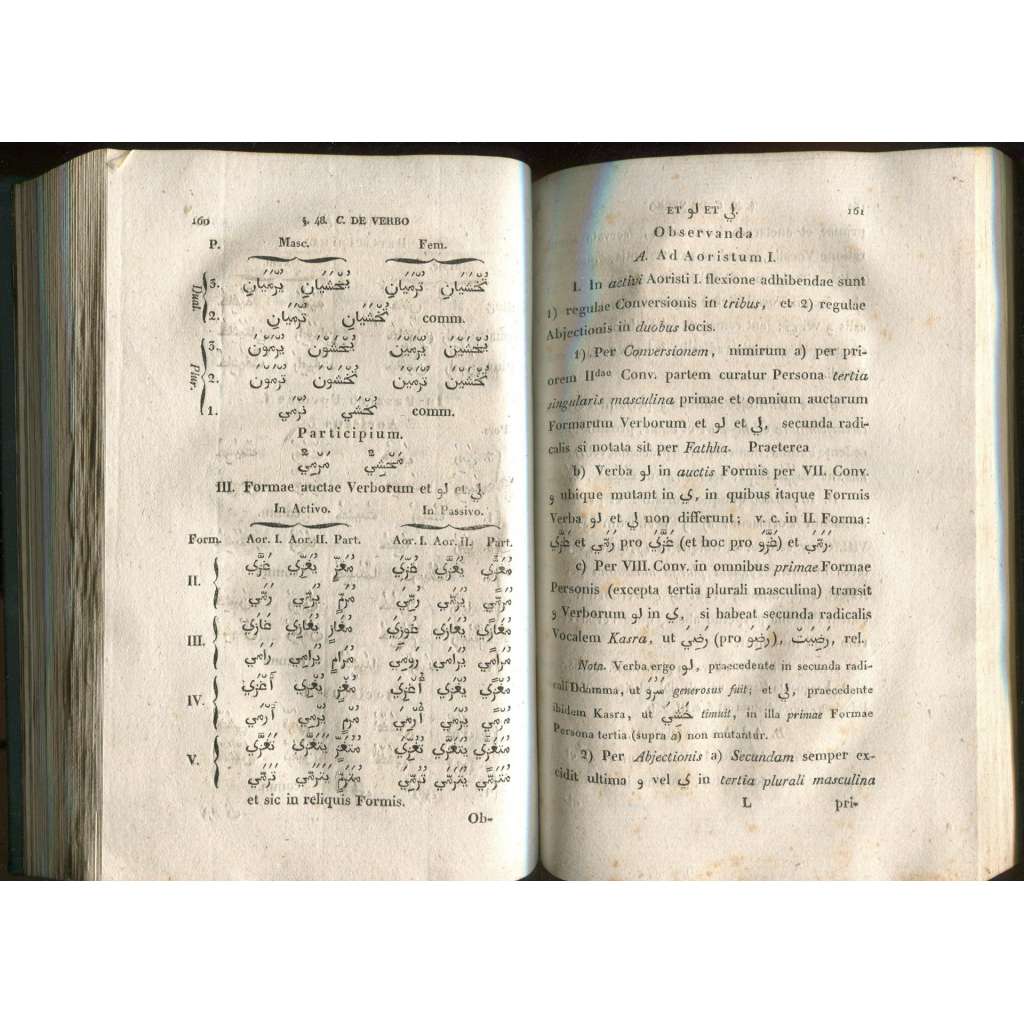 160 §. 48. C. DE VERBO
P. Masc. Fem.
Dual.
3. يُخْشَيَانِ يُرْمَيَانِ تُخْشَيَانِ تُرْمَيَانِ
2. تُخْشَيَانِ تُرْمَيَانِ comm.
Plur.
3. يُخْشَوْنَ يُرْمَوْنَ يُخْشَيْنَ يُرْمَيْنَ
2. تُخْشَوْنَ تُرْمَوْنَ تُخْشَيْنَ تُرْمَيْنَ
1. نُخْشَي نُرْمَي comm.
Participium.
مَخْشِيٌّ مَرْمِيٌّ
III. Formae auctae Verborum et لو et لي.
In Activo. In Passivo.
Form. Aor. I. Aor. II. Part. Aor. I. Aor. II. Part.
II. غَزَّي يُغَزِّي مُغَزٍّ غُزِّيَ يُغَزَّي مُغَزًّي
رَمَّي يُرَمِّي مُرَمٍّ رُمِّيَ يُرَمَّي مُرَمًّي
III. غَازَي يُغَازِي مُغَازٍ غُوزِيَ يُغَازَي مُغَازًي
رَامَي يُرَامِي مُرَامٍ رُومِيَ يُرَامَي مُرَامًي
IV. أَغْزَي يُغْزِي مُغْزٍ أُغْزِيَ يُغْزَي مُغْزًي
أَرْمَي يُرْمِي مُرْمٍ أُرْمِيَ يُرْمَي مُرْمًي
V. تَغَزَّي يَتَغَزَّي مُتَغَزٍّ تُغُزِّيَ يُتَغَزَّي مُتَغَزًّي
تَرَمَّي يَتَرَمَّي مُتَرَمٍّ تُرُمِّيَ يُتَرَمَّي مُتَرَمًّي
et sic in reliquis Formis.
Ob-
ET لو ET لي. 161
Observanda
A. Ad Aoristum I.
1. In activi Aoristi I. flexione adhibendae sunt
1) regulae Conversionis in tribus, et 2) regulae
Abjectionis in duobus locis.
1) Per Conversionem, nimirum a) per pri-
orem IIdae Conv. partem curatur Persona tertia
singularis masculina primae et omnium auctarum
Formarum Verborum et لو et لي, secunda radi-
calis si notata sit per Fathha. Praeterea
b) Verba لو in auctis Formis per VII. Conv.
و ubique mutant in ي, in quibus itaque Formis
Verba لو et لي non differunt; v. c. in II. Forma:
غَزَّي et رَمَّي pro غَزَّيَ (et hoc pro غَزَّوَ) et رَمَّيَ.
c) Per VIII. Conv. in omnibus primae Formae
Personis (excepta tertia plurali masculina) transit
و Verborum لو in ي, si habeat secunda radicalis
Vocalem Kasra, ut رَضِيَ (pro رَضِوَ), رَضِيَتْ, rel.
Nota. Verba ergo لو, praecedente in secunda radi-
cali Ddamma, ut سَرُوَ generosus fuit; et لي, praecedente
ibidem Kasra, ut خَشِيَ timuit, in illa primae Formae
Persona tertia (supra a) non mutantur.
2) Per Abjectionis a) Secundam semper ex-
cidit ultima و vel ي in tertia plurali masculina
L pri-